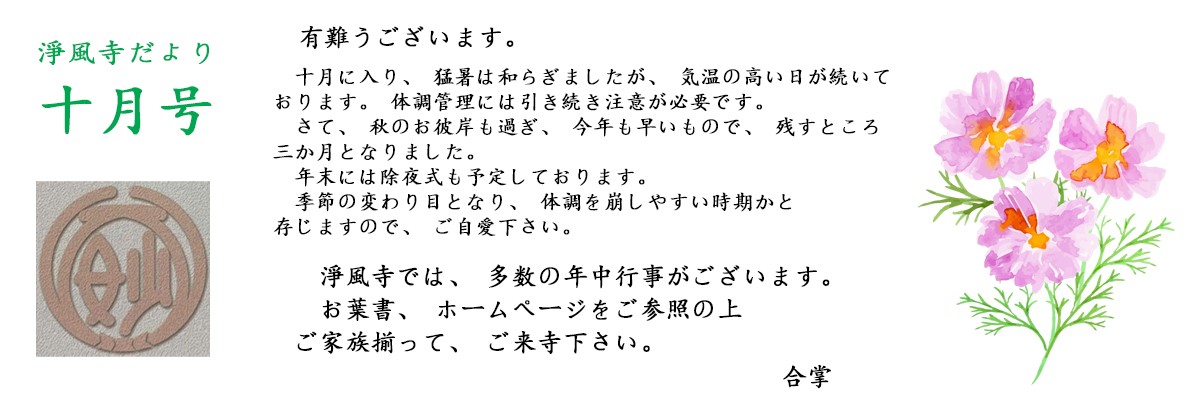 淨風寺だより
十月号
妙
有難うございます。
十月に入り、 猛暑は和らぎましたが、 気温の高い日が続いて
おります。 体調管理には引き続き注意が必要です。
さて、 秋のお彼岸も過ぎ、 今年も早いもので、 残すところ
三か月となりました。
年末には除夜式も予定しております。
季節の変わり目となり、 体調を崩しやすい時期かと
存じますので、 ご自愛下さい。
淨風寺では、 多数の年中行事がございます。
お葉書、 ホームページをご参照の上
ご家族揃って、 ご来寺下さい。
合掌